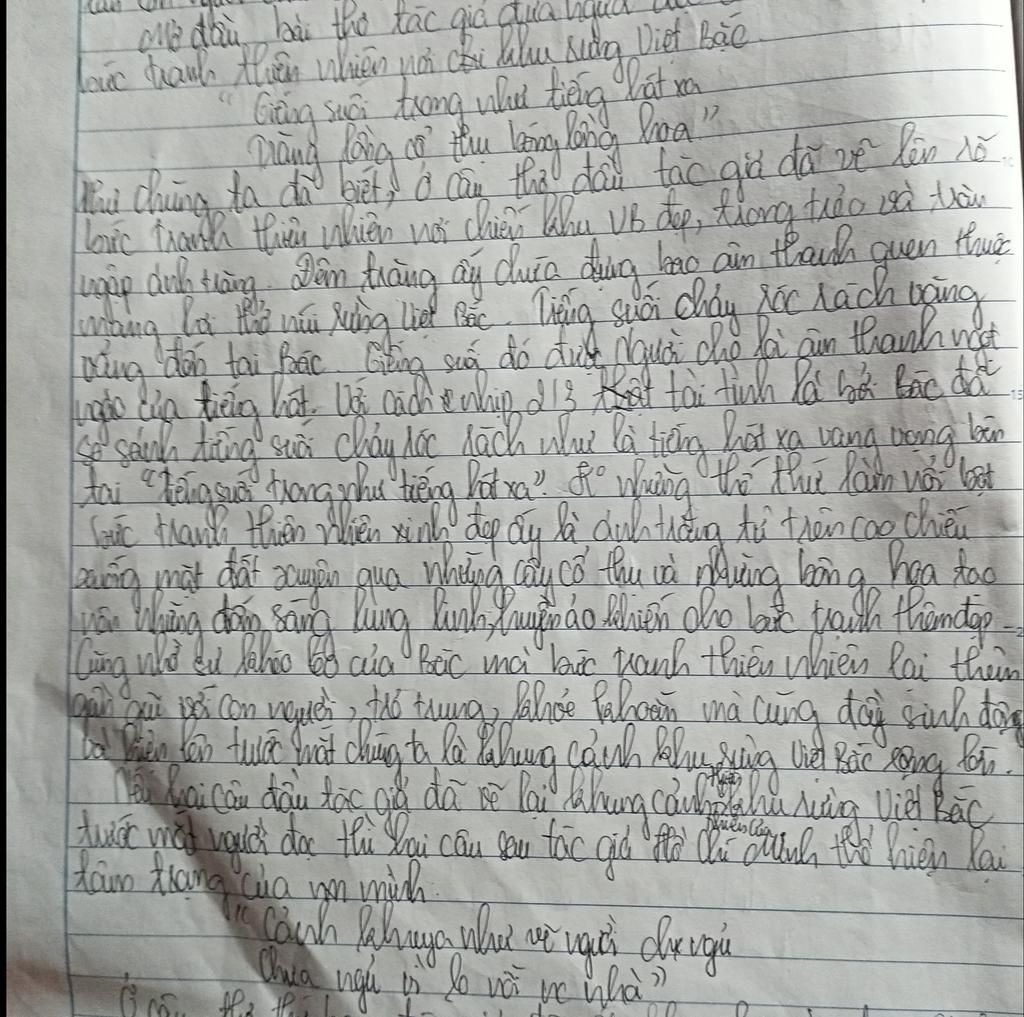 Mở đầu bài thơ tác giả đưa người
bức tranh thiên nhiên nơi khu rừng Việt Bắc
"Tiếng suối trong như tiếng hát xa
Trăng lồng cổ thụ bóng lồng hoa"
Như chúng ta đã biết, ở câu thơ đầu tác giả đã vẽ lên rõ
bức tranh thiên nhiên nơi chiến khu VB đẹp, trong trẻo và tràn
ngập ánh trăng. Đêm trăng ấy chứa đựng bao âm thanh quen thuộc
mang lại thở núi rừng Việt Bắc. Tiếng suối chảy róc rách vâng
vẳng đến tai Bác. Tiếng suối đó được Người cho là âm thanh ngọt
ngào của tiếng hát. Với cách nhịp 2/3 thật tài tình là bởi Bác đã
so sánh tiếng suối chảy róc rách như là tiếng hát xa vang vọng bên
tai "tiếng suối trong như tiếng hát xa". những thế thứ làm nổi bật
bức tranh thiên nhiên xinh đẹp ấy là ánh trăng từ trên cao chiếu
xuống mặt đất xuyên qua những cây cổ thụ và những bông hoa tạo
nên những đốm sáng lung linh, huyền ảo khiến cho bức tranh thêm đẹp
Cũng nhờ sự khéo léo của Bác mà bức tranh thiên nhiên lại thêm
gần gũi với con người, trẻ trung, khỏe khoắn mà cũng đầy sinh động
hiện lên trước mắt chúng ta là khung cảnh khu rừng Việt Bắc rộng lớn.
Nếu hai câu đầu tác giả đã vẽ lại khung cảnh thiên nhiên khu rừng Việt Bắc
trước mắt người đọc thì hai câu sau tác giả chỉ mình thể hiện lại
tâm trạng của mình.
"Cảnh khuya như vẽ người chưa ngủ
Chưa ngủ vì lo nỗi nc nhà"
Ở câu thơ